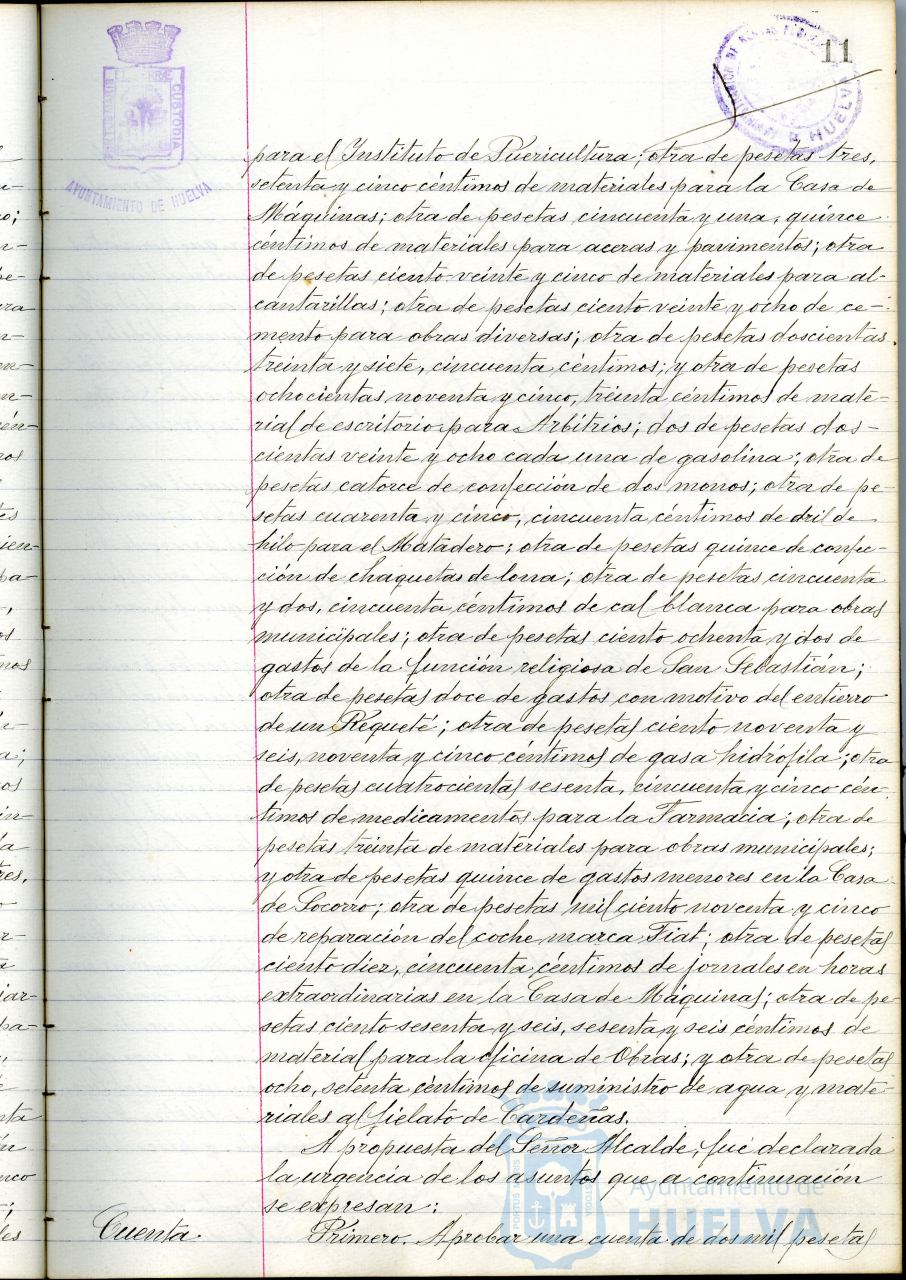 11
AYUNTAMIENTO DE HUELVA
CUSTODIA
HUELVA
para el Instituto de Puericultura; otra de pesetas tres,
setenta y cinco céntimos de materiales para la Casa de
Máquinas; otra de pesetas cincuenta y una, quince
céntimos de materiales para aceras y pavimentos; otra
de pesetas ciento veinte y cinco de materiales para al-
cantarillas; otra de pesetas ciento veinte y ocho de ce-
mento para obras diversas; otra de pesetas doscientas
treinta y siete, cincuenta céntimos; y otra de pesetas
ochocientas noventa y cinco, treinta céntimos de mate-
rial de escritorio para Arbitrios; dos de pesetas dos-
cientas veinte y ocho cada una de gasolina; otra de
pesetas catorce de confección de dos monos; otra de pe-
setas cuarenta y cinco, cincuenta céntimos de dril de
hilo para el Matadero; otra de pesetas quince de confec-
ción de chaquetas de lona; otra de pesetas cincuenta
y dos, cincuenta céntimos de cal blanca para obras
municipales; otra de pesetas ciento ochenta y dos de
gastos de la función religiosa de San Sebastián;
otra de pesetas doce de gastos con motivo del entierro
de un Requeté; otra de pesetas ciento noventa y
seis, noventa y cinco céntimos de gasa hidrófila; otra
de pesetas cuatrocientas sesenta, cincuenta y cinco cén-
timos de medicamentos para la Farmacia; otra de
pesetas treinta de materiales para obras municipales;
y otra de pesetas quince de gastos menores en la Casa
de Socorro; otra de pesetas mil ciento noventa y cinco
de reparación del coche marca Fiat; otra de pesetas
ciento diez, cincuenta céntimos de jornales en horas
extraordinarias en la Casa de Máquinas; otra de pe-
setas ciento sesenta y seis, sesenta y seis céntimos de
material para la oficina de Obras; y otra de pesetas
ocho, setenta céntimos de suministro de agua y mate-
riales al fielato de Cardeñas.
A propuesta del Señor Alcalde, fué declarada
la urgencia de los asuntos que a continuación
se expresan:
Cuenta
Primero. Aprobar una cuenta de dos mil pesetas
Ayuntamiento de
HUELVA